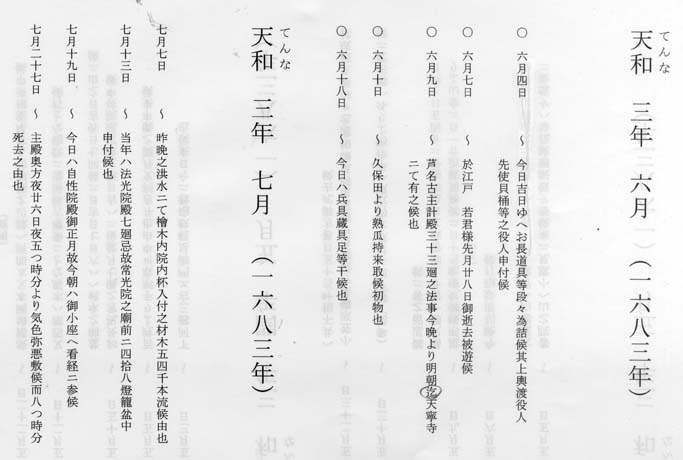 てんな
天和 三年 六月 (一六八三年)
〇 六月四日 ~ 今日吉日ゆへお長道具等段々為詰候其上輿渡役人
先使貝桶等之役人申付候
〇 六月七日 ~ 於江戸 若君様先月廿八日御逝去被遊候
〇 六月九日 ~ 芦名古主計殿三十三廻之法事今晩より明朝迄天寧寺
ニて有之候也
〇 六月十日 ~ 久保田より熟瓜持来取候初物也
〇 六月十八日 ~ 今日ハ兵具蔵具足等干候也
てんな
天和 三年 七月 (一六八三年)
七月七日 ~ 昨晩之洪水ニて檜木内院内杯入付之材木五四千本流候由也
七月十三日 ~ 当年ハ法光院殿七廻忌故常光院之廟前ニ四拾八燈龍盆中
申付候也
七月十九日 ~ 今日ハ自性院殿御正月故今朝ハ御小座へ看経ニ参候
七月二十七日 ~ 主殿奥方夜廿六日夜五つ時分より気色弥悪敷候而八つ時分
死去之由也